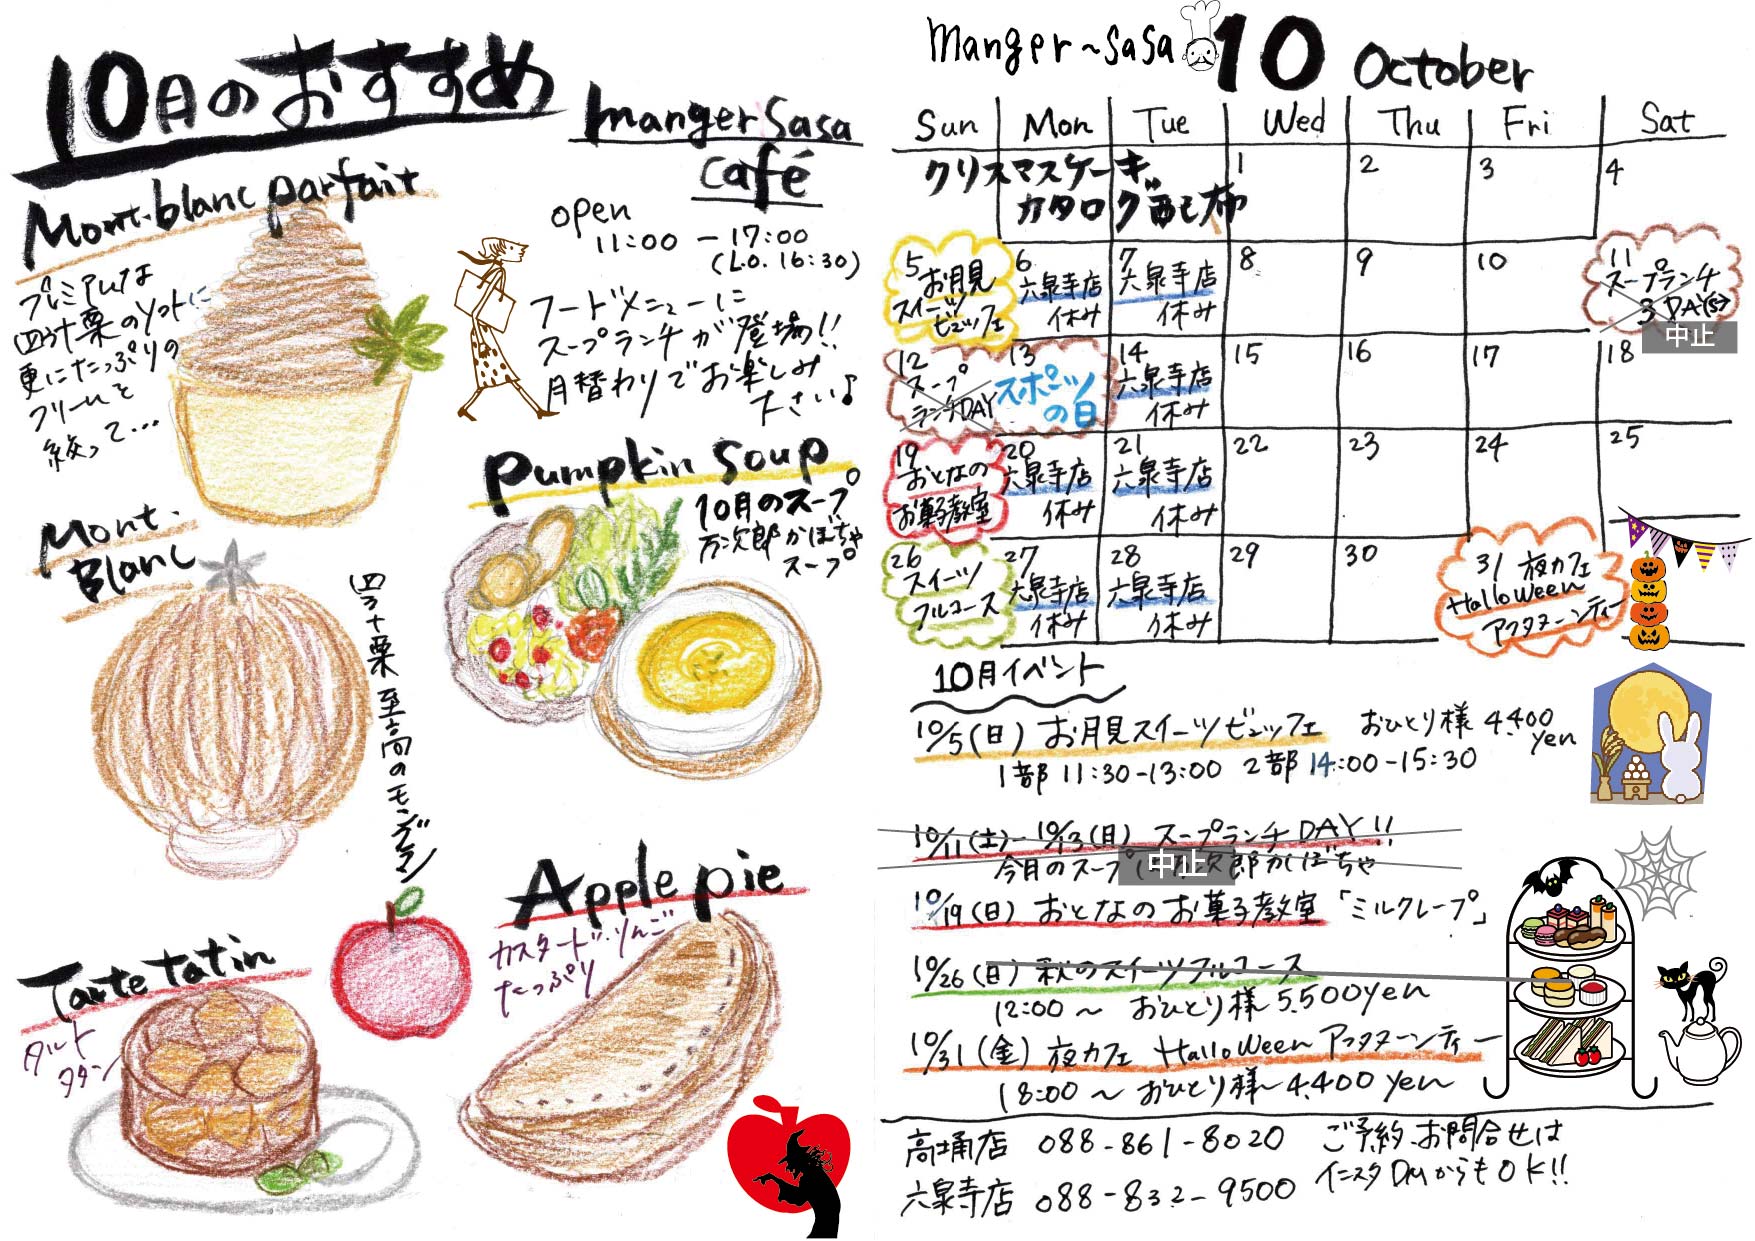 10月のおすすめ
manger Sasa
café
open
11:00 - 17:00
(L.O. 16:30)
フードメニューに
スープランチが登場!!
月替わりでお楽しみ
下さい♪
Mont-blanc parfait
プレミアムな
四万十栗のソフトに
更にたっぷりの
クリームを
絞って…
pumpkin soup
10月のスープ
万次郎かぼちゃ
スープ
Mont-
Blanc
四万十栗 至高のモンブラン
Apple pie
カスタード・りんご
たっぷり
Tarte tatin
タルト
タタン
manger~sasa 10 October
Sun Mon Tue Wed Thu Fri Sat
クリスマスケーキ
カタログ配布
1 2 3 4
5 お月見
スイーツ
ビュッフェ
6 六泉寺店
休み
7 六泉寺店
休み
8 9 10
11
スープランチ
3 DAYS
中止
12 スープ
ランチDAY
13 スポーツ
の日
14 六泉寺店
休み
15 16 17 18
19 おとなの
お菓子教室
20 六泉寺店
休み
21 六泉寺店
休み
22 23 24 25
26 スイーツ
フルコース
27 六泉寺店
休み
28 六泉寺店
休み
29 30
31 夜カフェ
Halloween
アフタヌーンティー
10月イベント
10/5(日) お月見スイーツビュッフェ おひとり様 4.400 yen
1部 11:30-13:00 2部 14:00-15:30
10/11(土)- 10/13(月) スープランチ DAY!!
今月のスープは万次郎かぼちゃ
中止
10/19(日) おとなのお菓子教室 「ミルクレープ」
10/26(日) 秋のスイーツフルコース
12:00 ~ おひとり様 5.500yen
10/31(金) 夜カフェ Halloween アフタヌーンティー
18:00 ~ おひとり様~ 4.400 yen
高埇店 088-861-8020
六泉寺店 088-832-9500
ご予約、お問合せは
インスタDMからもOK!!